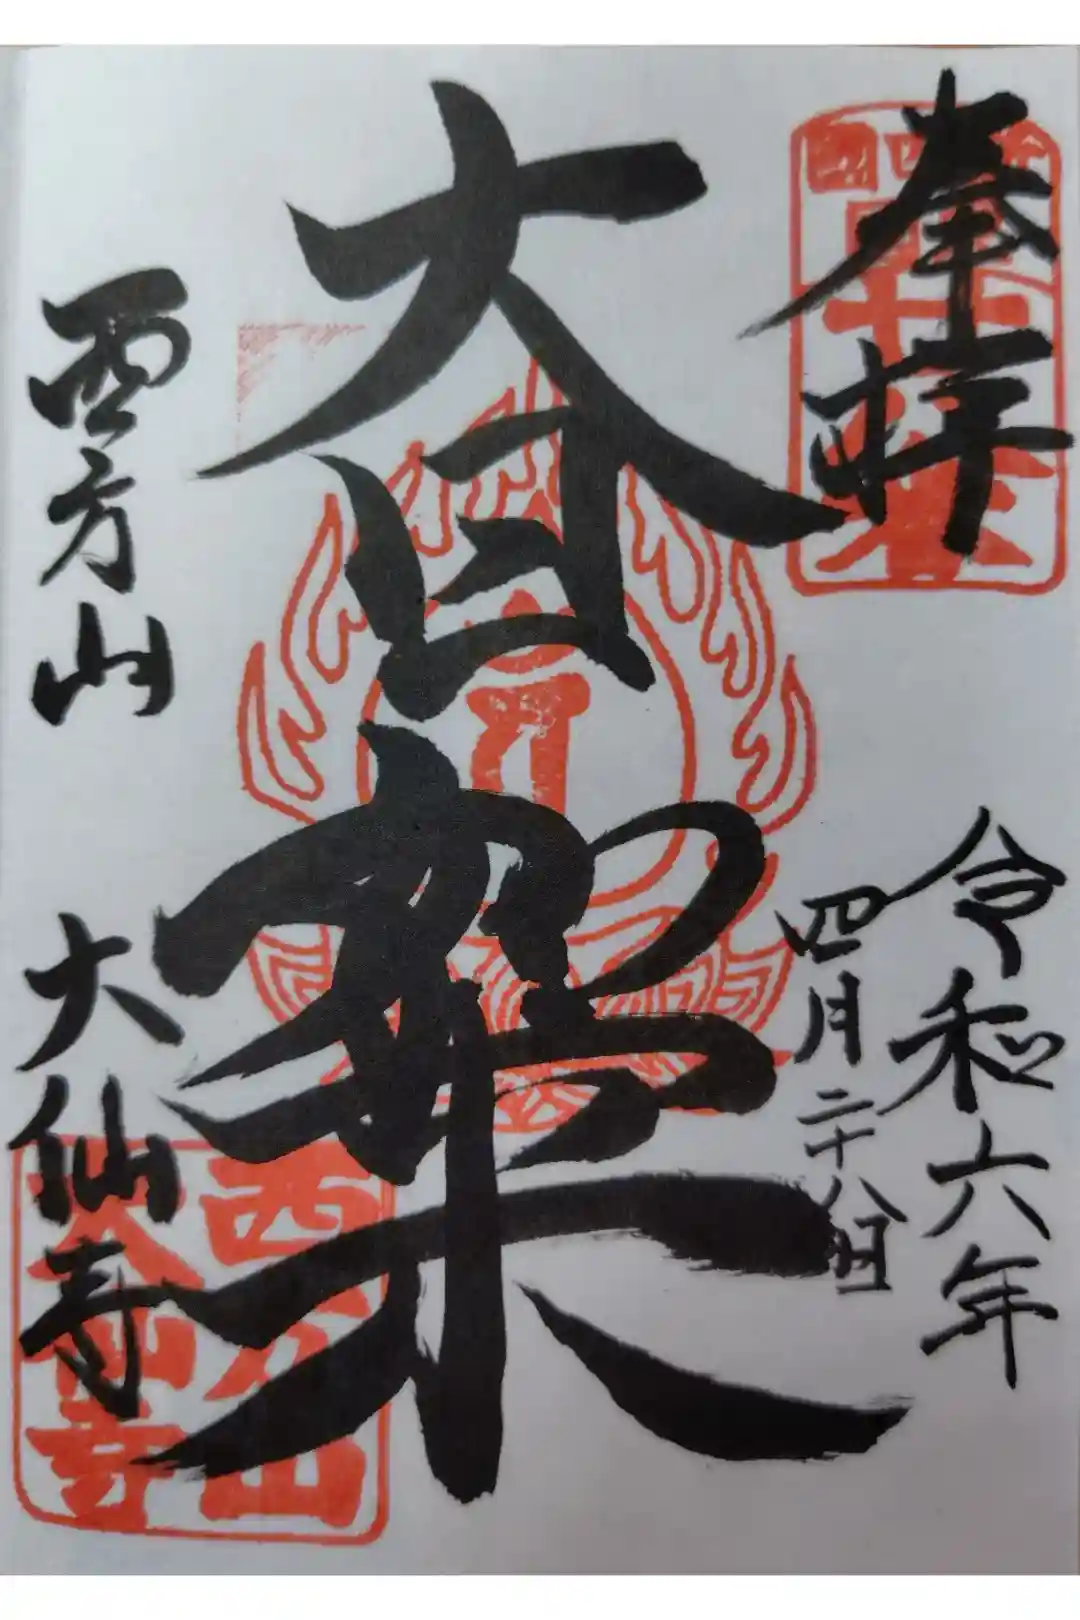 奉拝
令和六年
四月二十八日
大日如来
西方山
大仙寺
西方山
大仙寺